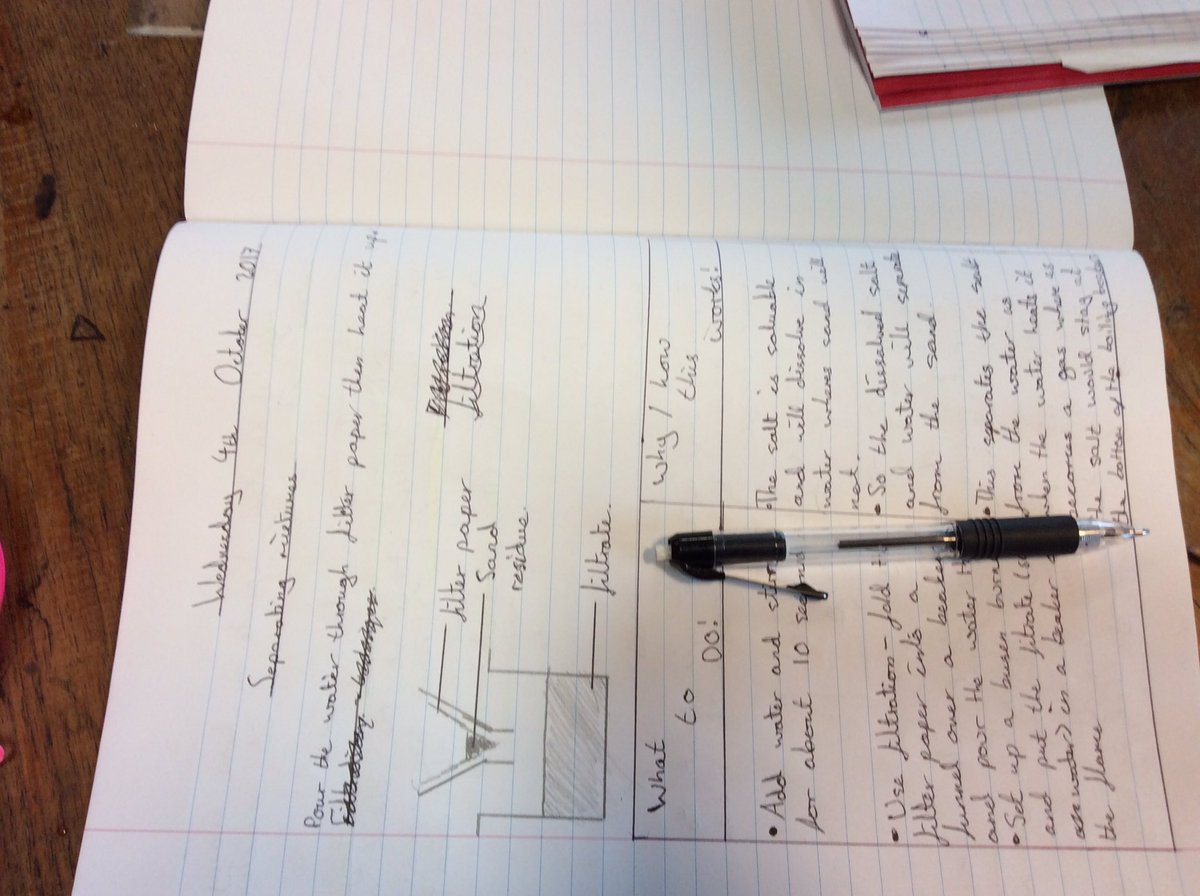 Wednesday 4th October 2017
Separating mixtures
Pour the water through filter paper then heat it up.
filter paper
filtration
Sand
residue.
filtrate.
What to DO!
Why / how this works!
• Add water and stir
for about 10
• Use filtration - fold
filter paper into a
funnel over a beaker
and pour the water
• Set up a busen
and put the filtrate
in a beaker
the flame
• The salt is soluable
and will dissolve in
water wheras sand will
not.
• So the dissolved salt
and water will seperate
from the sand.
• This separates the salt
from the water as
when the water heats it
becomes a gas where as
the salt would stay at
the bottom of the boiling